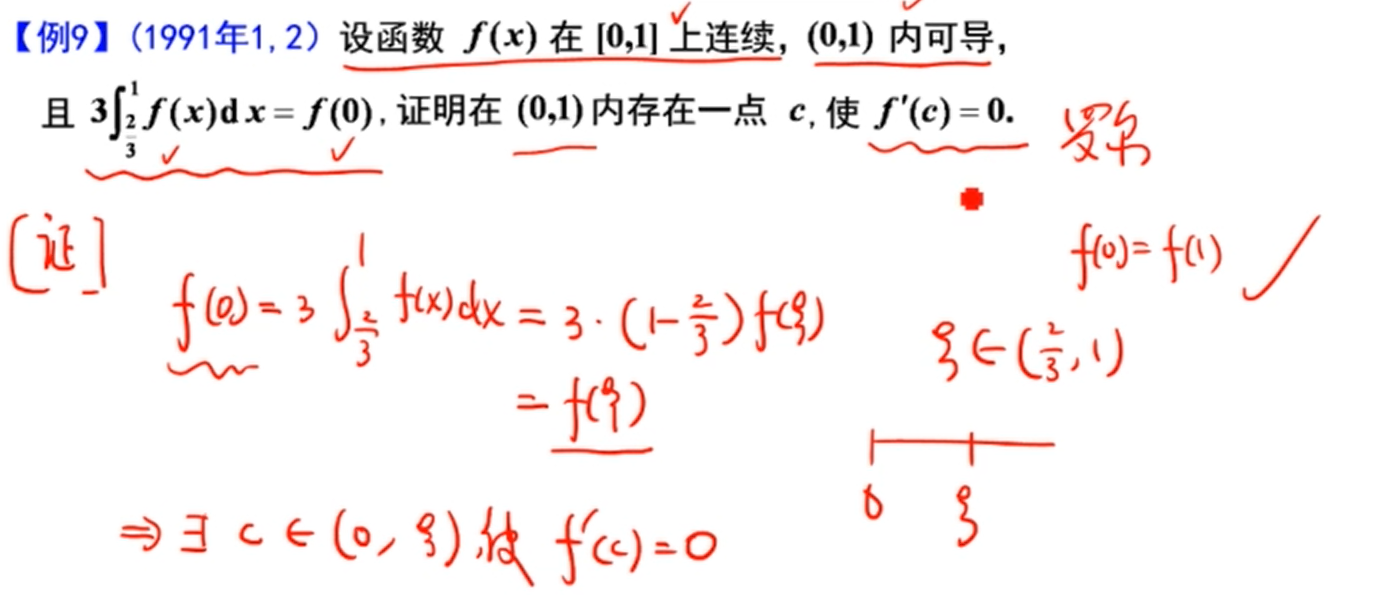 【例9】（1991年1,2）设函数 f(x) 在 [0,1] 上连续，(0,1) 内可导，
且 3∫_{2/3}^{1} f(x)dx = f(0)，证明在 (0,1) 内存在一点 c，使 f′(c) = 0.
罗尔
[证]
f(0) = f(1)
f(0) = 3∫_{2/3}^{1} f(x)dx = 3·(1-2/3)f(ξ)
ξ∈(2/3, 1)
= f(ξ)
0 ξ
⇒ ∃ c ∈ (0, ξ), 使 f′(c) = 0